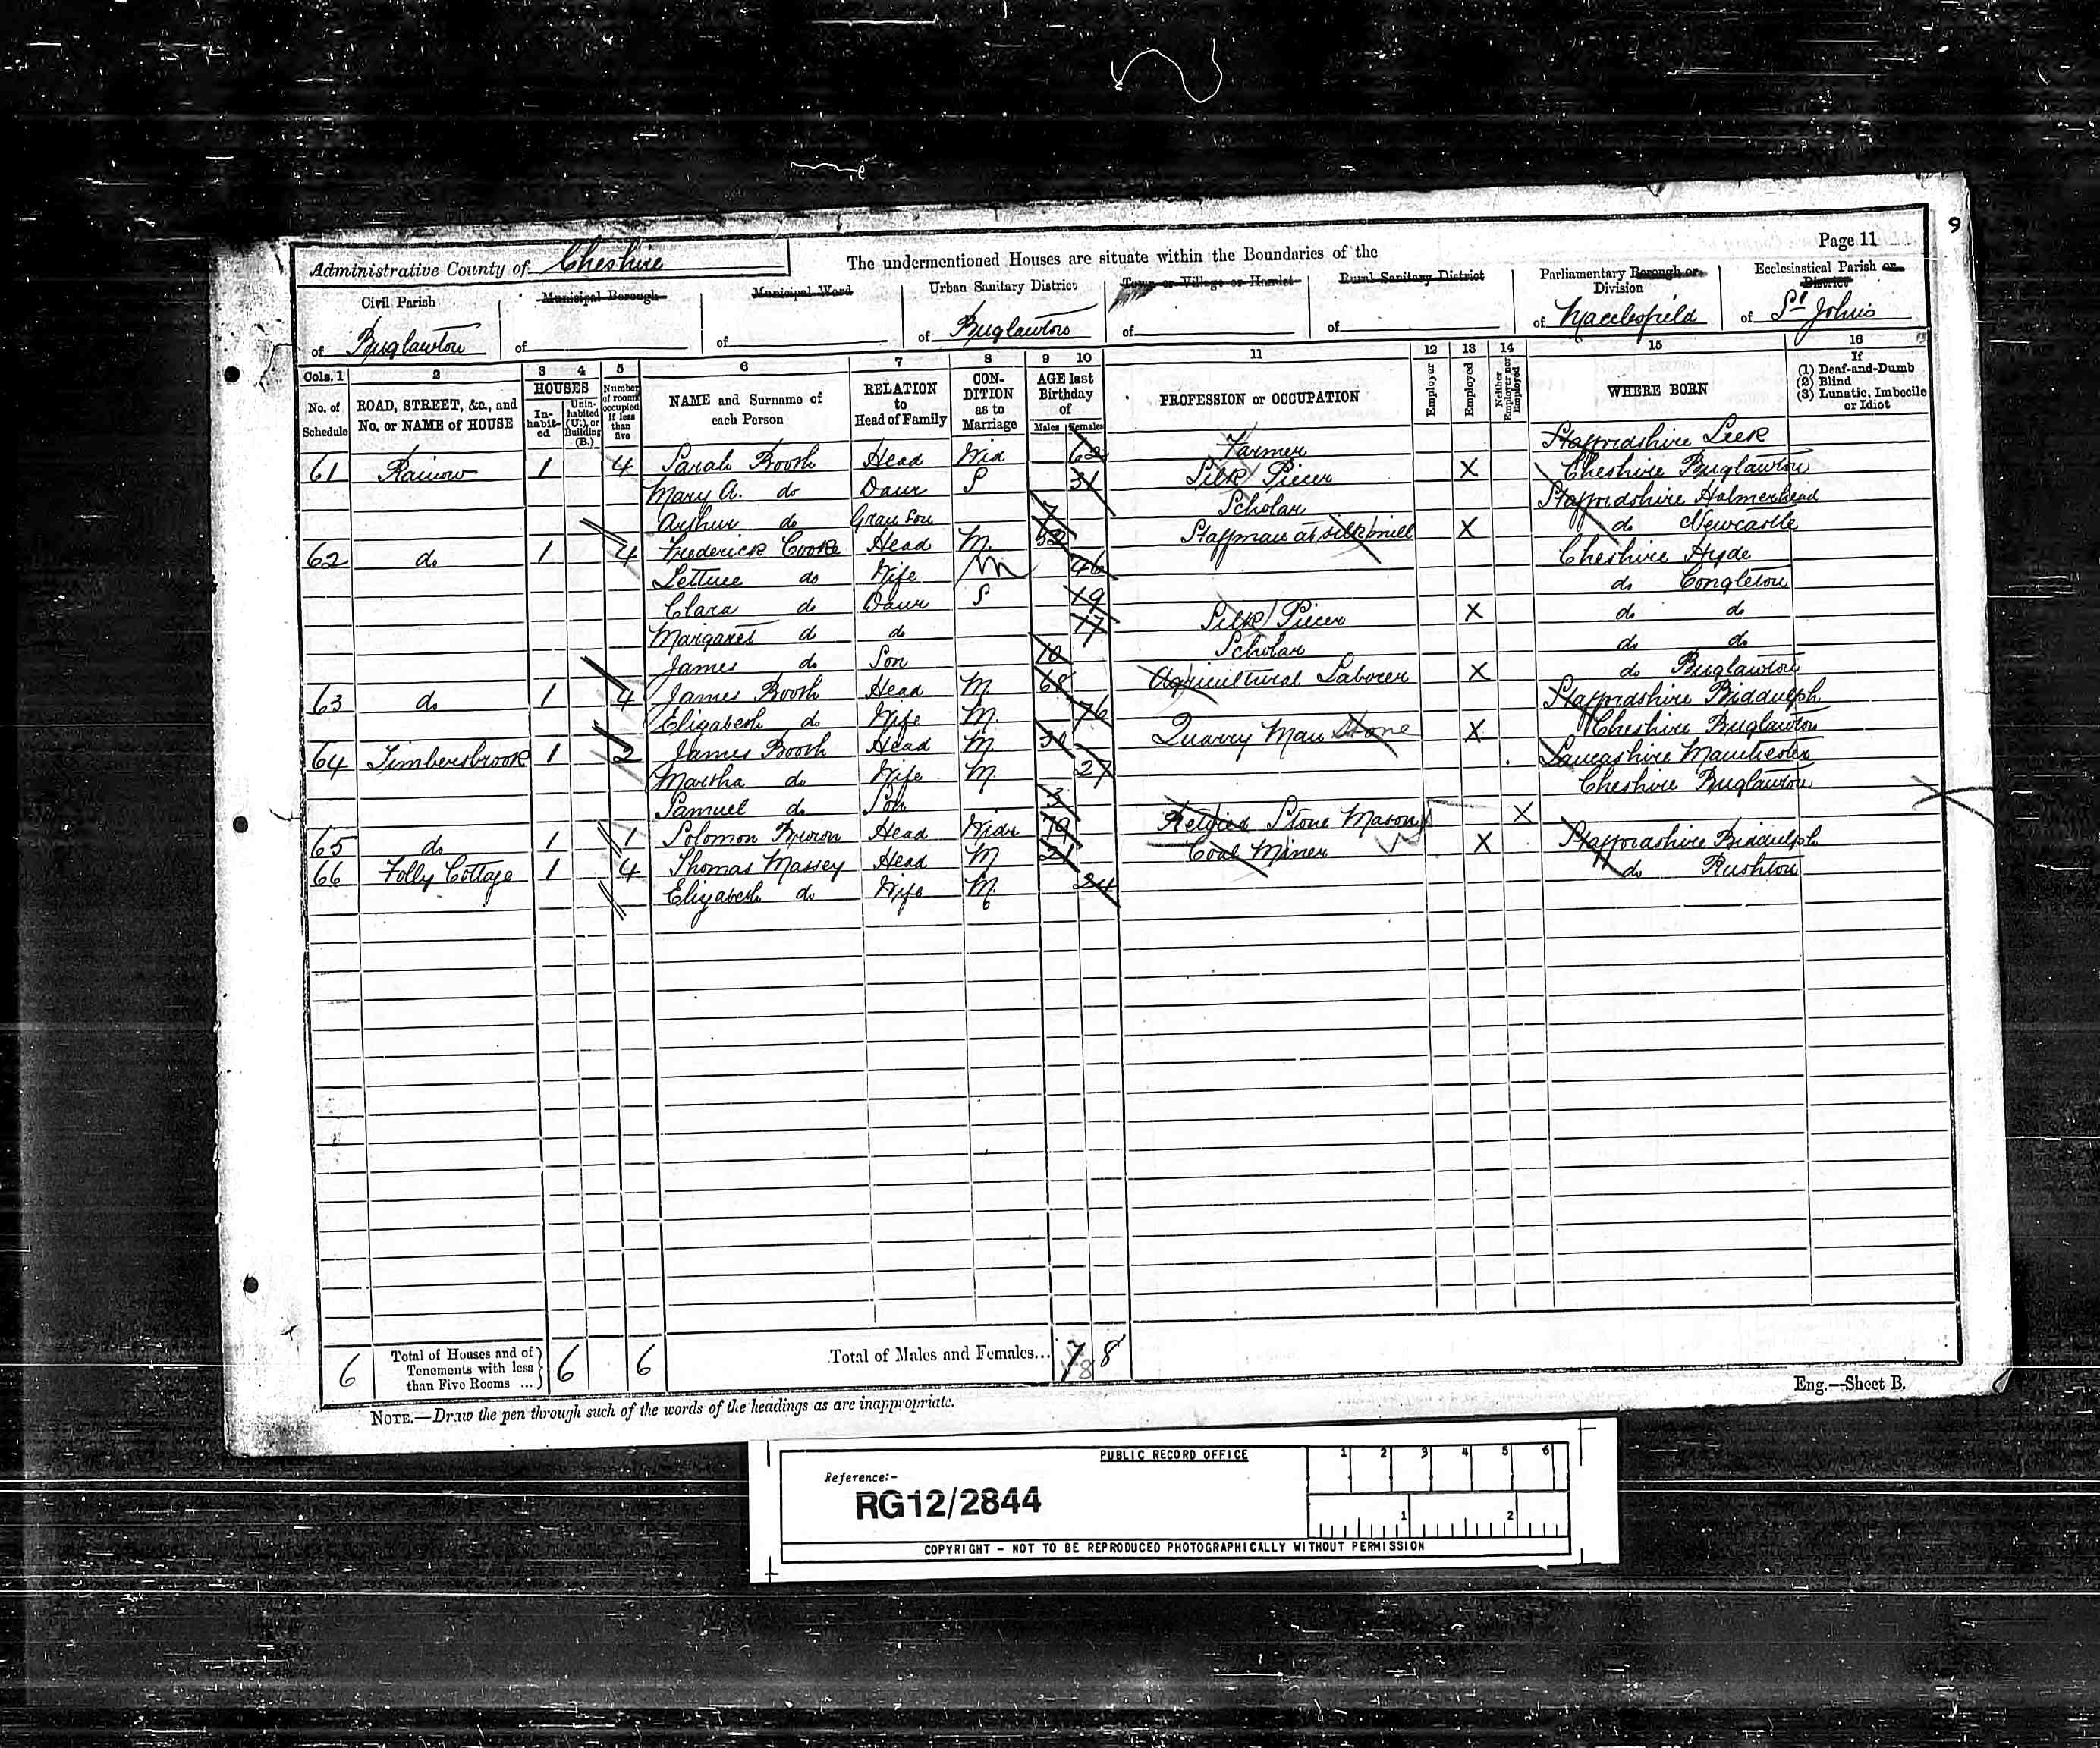 9
Page 11
Administrative County of Cheshire
The undermentioned Houses are situate within the Boundaries of the
Civil Parish of Buglawton
Municipal Borough of
Municipal Ward of
Urban Sanitary District of Buglawton
Town or Village or Hamlet of
Rural Sanitary District of
Parliamentary Borough or Division of Macclesfield
Ecclesiastical Parish or District of St Johns
Cols. 1 2 3 4 5 6 7 8 9 10 11 12 13 14 15 16
No. of Schedule
ROAD, STREET, &c., and No. or NAME of HOUSE
HOUSES
In-habit-ed
Unin-habited (U.), or Building (B.)
Number of rooms occupied if less than five
NAME and Surname of each Person
RELATION to Head of Family
CON-DITION as to Marriage
AGE last Birthday of
Males Females
PROFESSION or OCCUPATION
Employer
Employed
Neither Employer nor Employed
WHERE BORN
If (1) Deaf-and-Dumb (2) Blind (3) Lunatic, Imbecile or Idiot
61 Rainow 1 4 Sarah Booth Head Wid 62 Farmer Staffordshire Leek
Mary A. do Daur S 31 Silk Piecer X Cheshire Buglawton
Arthur do Gran Son 7 Scholar Staffordshire
62 do 1 4 Frederick Cooke Head M. 52 at silk mill X do Newcastle
Lettuce do Wife M 46 Cheshire Hyde
Clara do Daur S 19 do Congleton
Margaret do do 17 Silk Piecer X do do
James do Son 10 Scholar do do
63 do 1 4 James Booth Head M 68 Agricultural Laborer X do Buglawton
Elizabeth do Wife M. 76 Staffordshire Biddulph
64 Timbersbrook 1 2 James Booth Head M Quarry Man Stone X Cheshire Buglawton
Martha do Wife M. 27 Lancashire Manchester
Samuel do Son 3 Cheshire Buglawton
65 do 1 1 Solomon Head Widr 79 Retired Stone Mason X
66 Folly Cottage 1 4 Thomas Massey Head M 21 Coal Miner X Staffordshire Biddulph
Elizabeth do Wife M. 24 do Rushton
6 Total of Houses and of Tenements with less than Five Rooms ... 6 6 Total of Males and Females... 7 8
NOTE.—Draw the pen through such of the words of the headings as are inappropriate.
Eng.—Sheet B.
PUBLIC RECORD OFFICE
1 2 3 4 5 6
Reference:-
RG12/2844
1 2
COPYRIGHT - NOT TO BE REPRODUCED PHOTOGRAPHICALLY WITHOUT PERMISSION